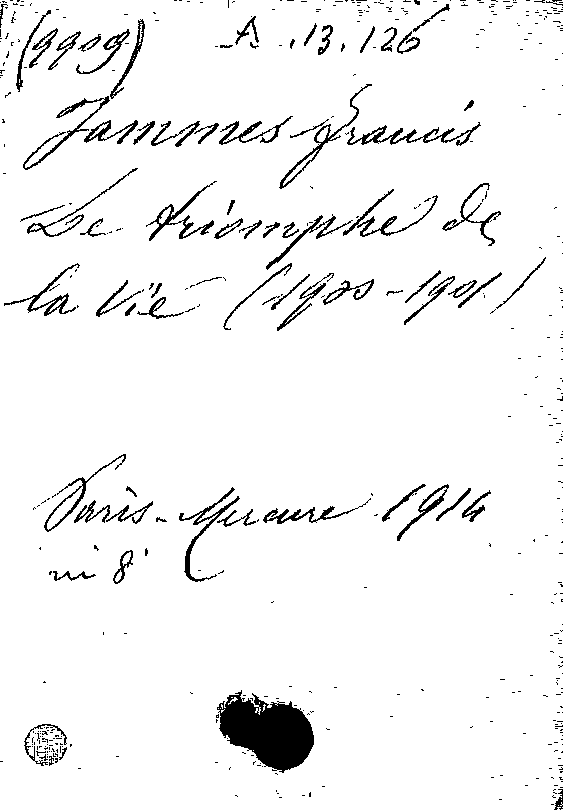 (9909) A.13.126
Jammes Francis
Le triomphe de
la Vie (1900-1901)
Paris-Mercure 1914
in 8°